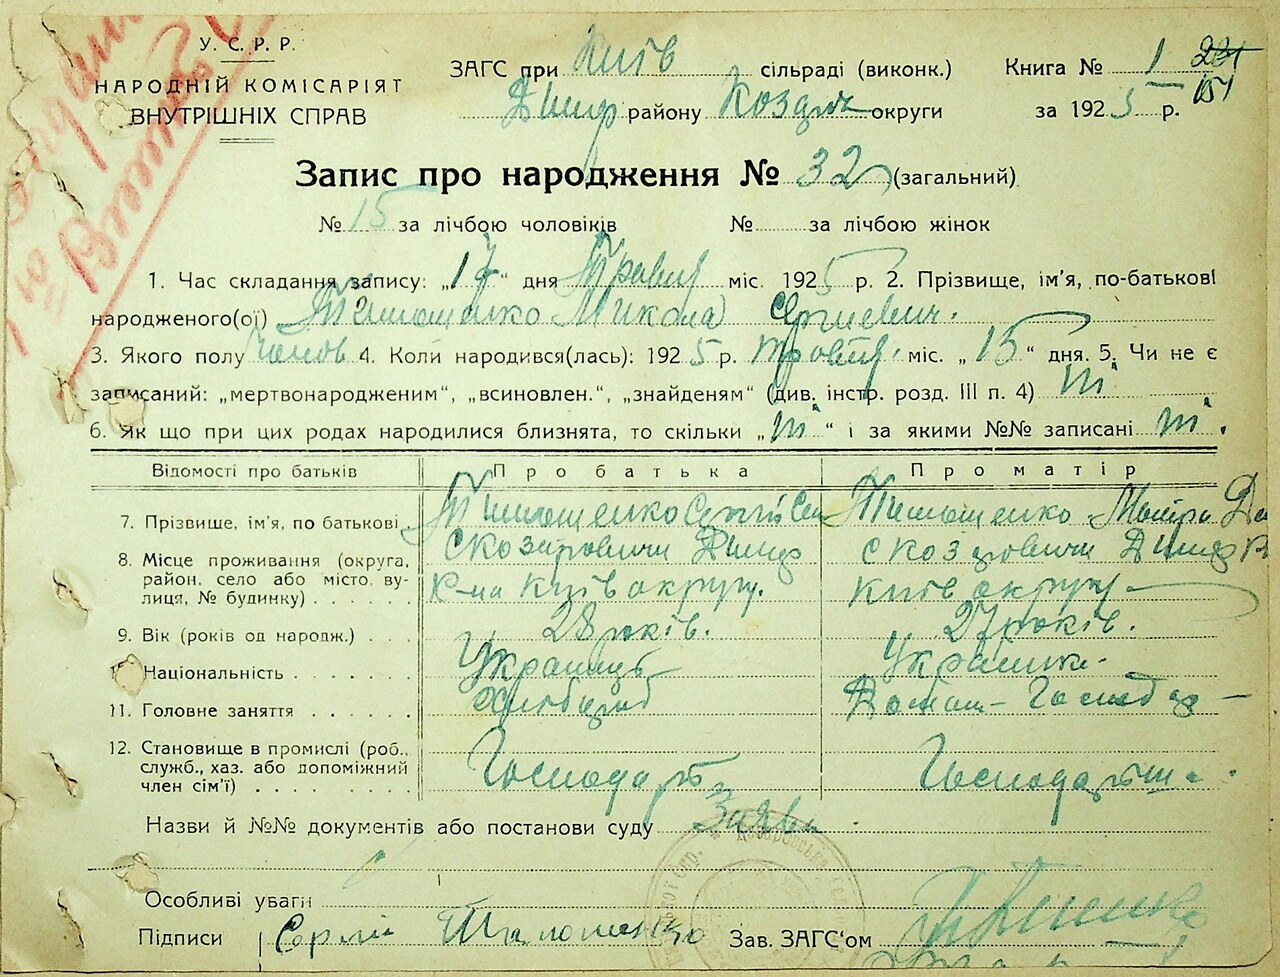 У.С.Р.Р.
НАРОДНІЙ КОМІСАРІЯТ
ВНУТРІШНІХ СПРАВ
ЗАГС при Київ сільраді (виконк.) Книга № 1
району округи за 1925 р. 151
Запис про народження № 32 (загальний)
№ 15 за лічбою чоловіків № за лічбою жінок
1. Час складання запису: „17“ дня Травня міс. 1925 р. 2. Прізвище, ім'я, по-батькові
народженого(ої) Тимошенко Микола Сергиевич.
3. Якого полу 4. Коли народився(лась): 1925 р. травня міс. „15“ дня. 5. Чи не є
записаний: „мертвонародженим“, „всиновлен.“, „знайденям“ (див. інстр. розд. III п. 4) ні
6. Як що при цих родах народилися близнята, то скільки „ні“ і за якими №№ записані ні.
Відомості про батьків Про батька Про матір
7. Прізвище, ім'я, по батькові Тимошенко Сергій Тимошенко
8. Місце проживання (округа, район, село або місто, вулиця, № будинку) с Козаровичи Димер
р-на Київ округу. с Козаровичи Димер
Київ округу
9. Вік (років од народж.) 28 років. 27 років.
Національність Українець Українка.
11. Головне заняття Хлібороб Домаш-Господар
12. Становище в промислі (роб., служб., хаз. або допоміжний член сім'ї) Господарь Господарьша.
Назви й №№ документів або постанови суду Заява.
Особливі уваги
Підписи Сергій Тимошенко Зав. ЗАГС'ом